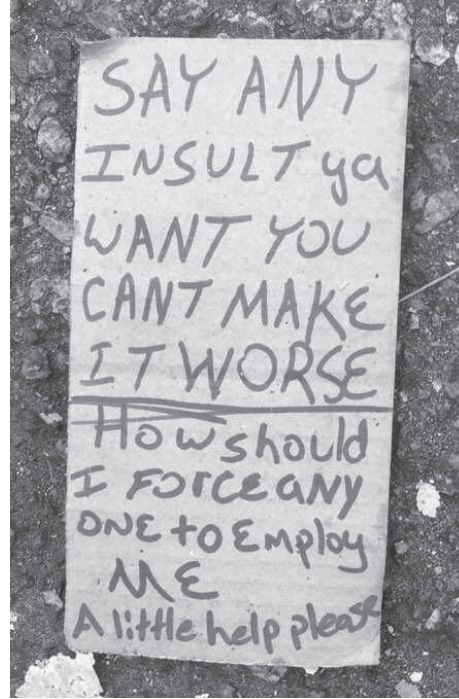 SAY ANY
INSULT ya
WANT YOU
CANT MAKE
IT WORSE
How should
I FORCE ANY
ONE to Employ
ME
A little help please